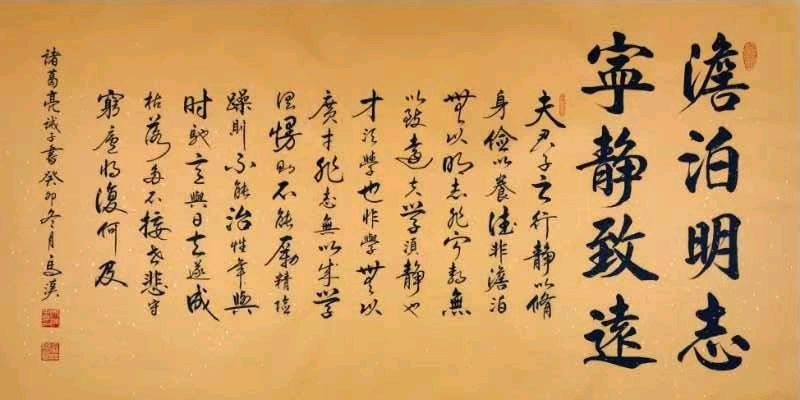 澹泊明志
寧静致遠
夫君子之行静以脩
身儉以養德非澹泊
無以明志非寧静無
以致遠夫學須静也
才須學也非學無以
廣才非志無以成學
淫慢則不能勵精險
躁則不能治性年與
时馳意與日去遂成
枯落多不接世悲守
窮廬將復何及
諸葛亮誡子書癸卯冬月馬